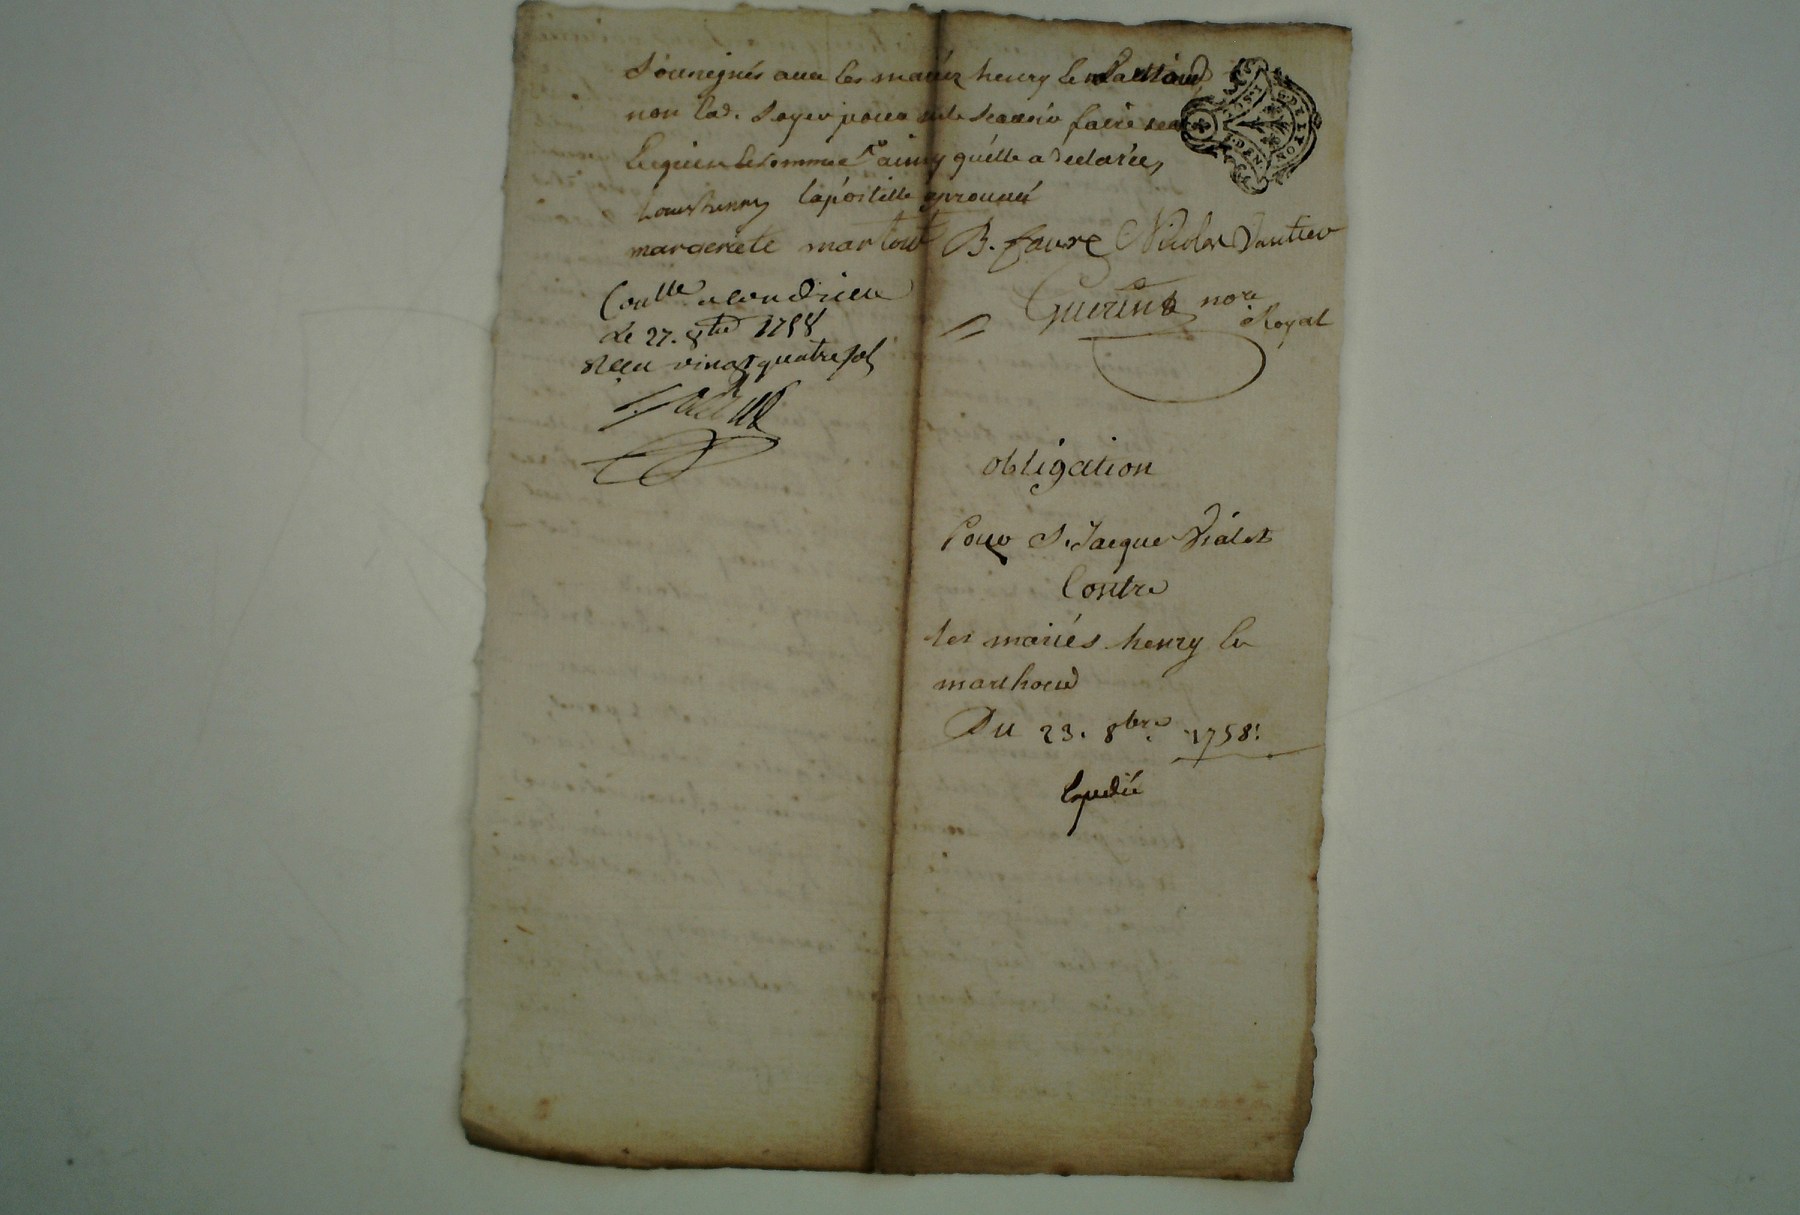 Sousignés avec les mariéz henry le
non lad. Soyer pour ne le scavoir faire de
Lequise de somme ainsy qu'elle a declarée,
Louis henry l'apostille aprouvé
margerete martout B. favre Nicolas Vautier
Guerin nore Royal
Conlle a Condrieu
Le 27. 8bre 1758
Reçu vingt quatre sol
obligation
Pour S. Jacque Vialet
Contre
les mariés henry le
marthoud
Du 23. 8bre. 1758.
Expedié